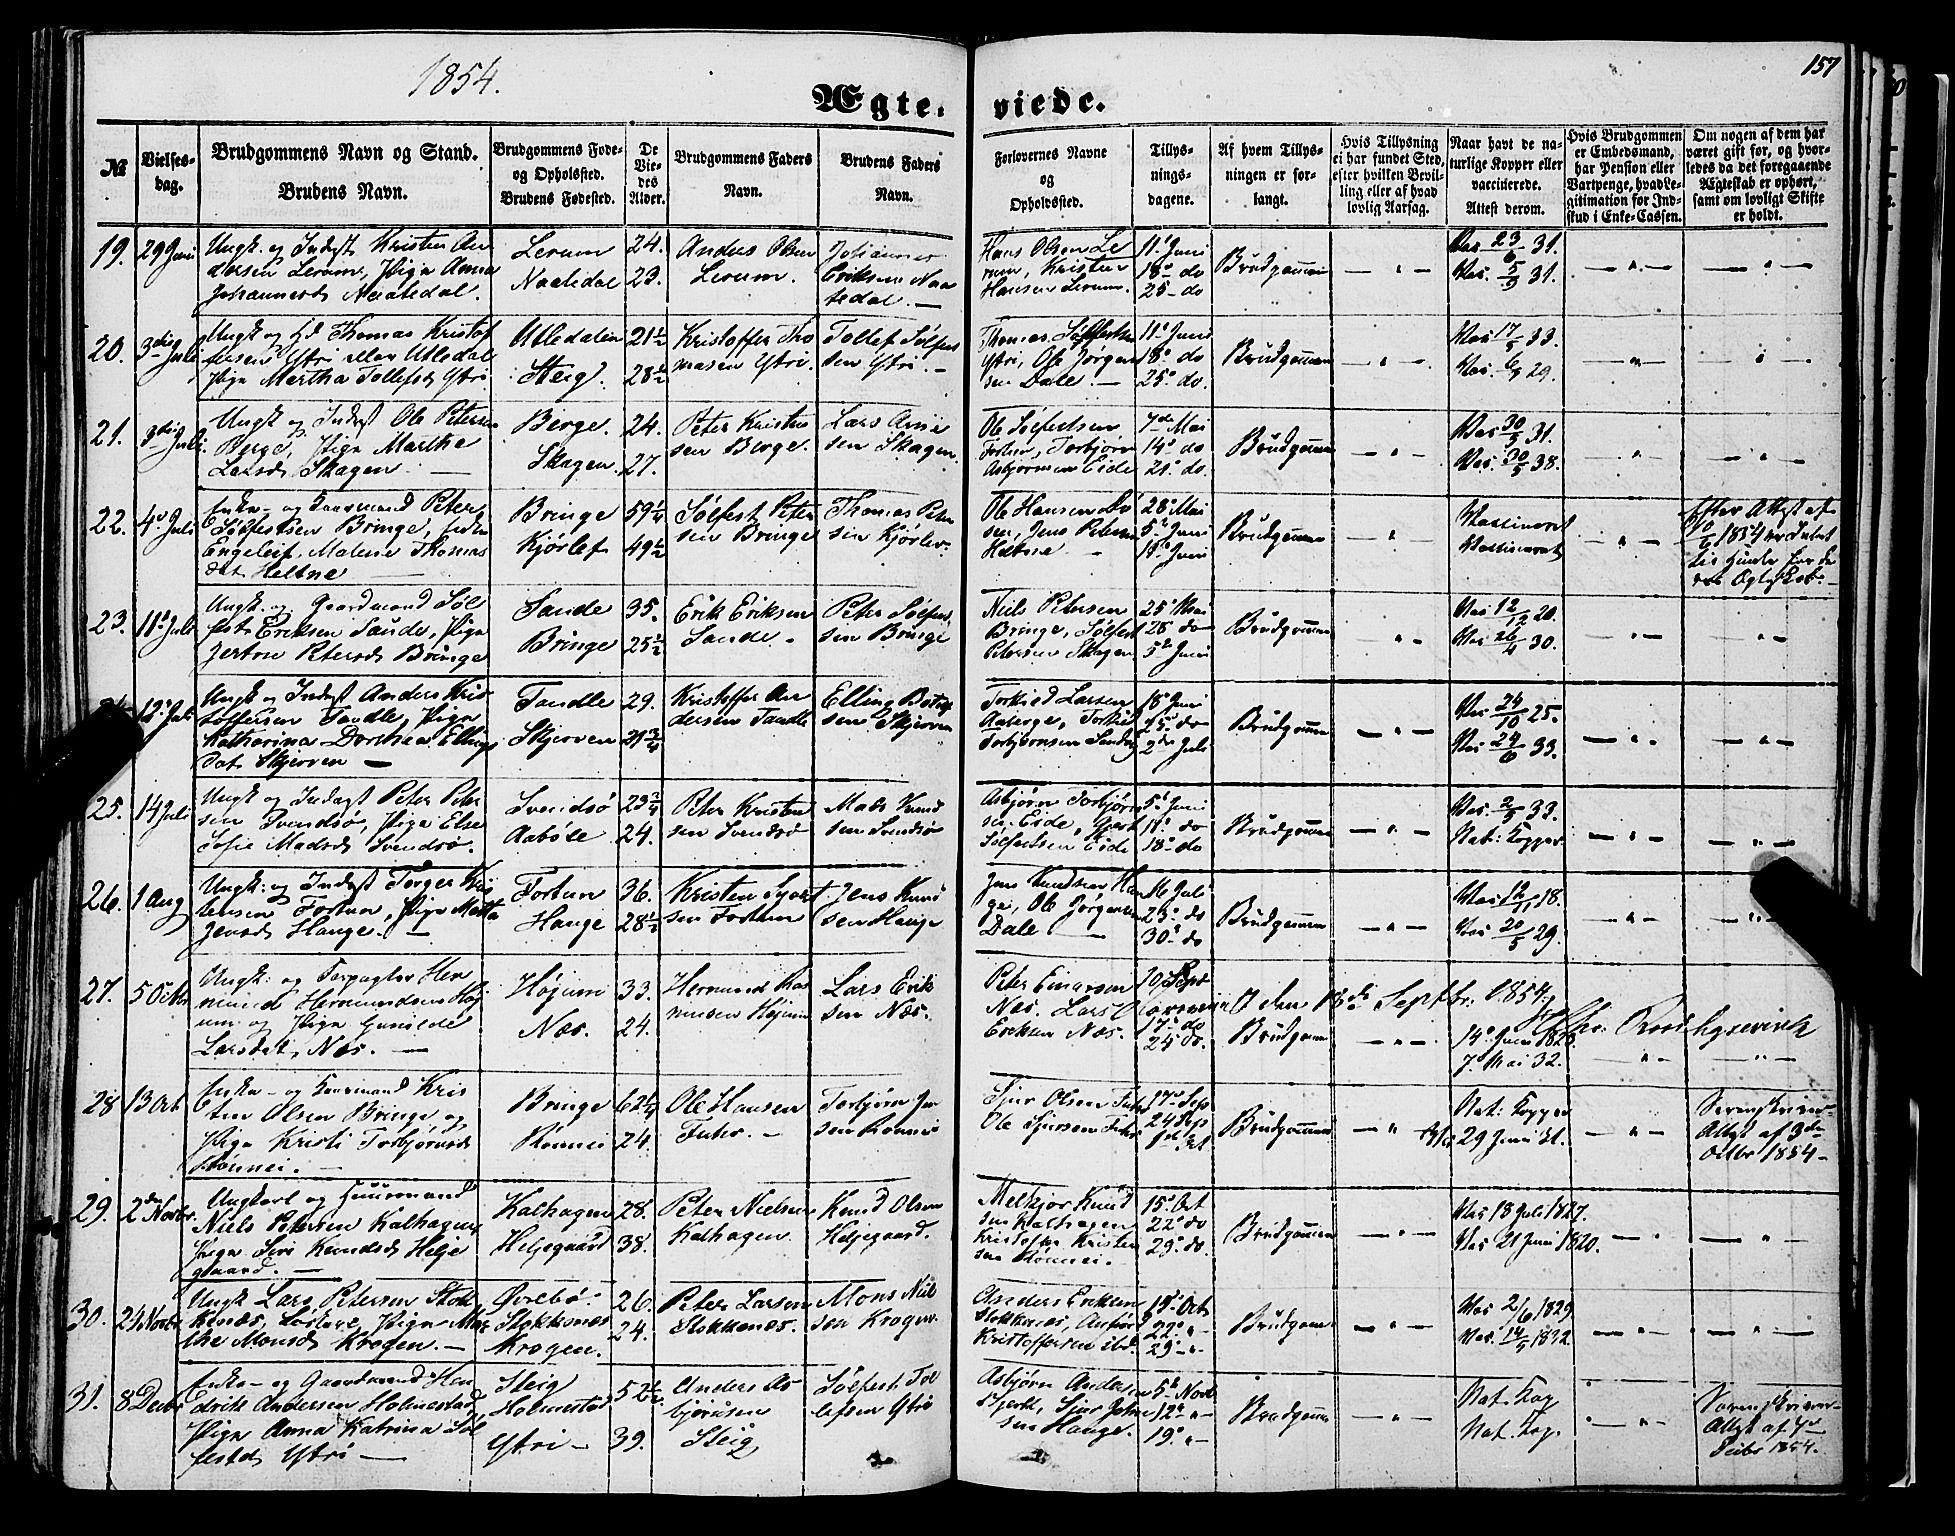 1854.
157
Ægte-
viede.
№
Vielses-
dag.
Brudgommens Navn og Stand.
Brudens Navn.
Brudgommens Føde-
og Opholdsted.
Brudens Fødested.
De
Vie-
des
Alder.
Brudgommens Faders
Navn.
Brudens Faders
Navn.
Forlovernes Navne
og
Opholdssted.
Tillys-
nings-
dagene.
Af hvem Tillys-
ningen er for-
langt.
Hvis Tillysning
ei har fundet Sted,
efter hvilken Bevil-
ling eller af hvad
lovlig Aarsag.
Naar havt de na-
turlige Kopper eller
vaccinerede.
Attest derom.
Hvis Brudgommen
er Embedsmand,
har Pension eller
Vartpenge, hvad Le-
gitimation for Ind-
skud i Enke-Cassen.
Om nogen af dem har
været gift før, og hvor-
ledes da det foregaaende
Ægteskab er ophørt,
samt om lovligt Skifte
er holdt.
19. 29 Juni
Ungk. og Inderst Kristen An
dersen Lerum, Pige Anna
Johannesd. Naatedal.
Lerum
Naatedal
24.
23.
Anders Olsen
Lerum.
Johannes
Eriksen Naa
tedal
Hans Olsen Le
rum, Kristen
Hansen Lerum.
11 Juni
18 do
25 do
Brudgommen
Vac. 23/6 31.
Vac. 5/9 31.
20. 3die Juli
Ungk og Thomas Kristof
fersen Ytri eller Utledal
Pige Martha Tollefsd Ytri
Utledalen
Steig.
21½
28½
Kristoffer Tho
masen Ytri.
Tollef Sølfest
sen Ytri.
Thomas Sølfestsen
Ytri, Ole Jørgen
sen Dale.
11 Juni
18 do
25 do.
Brudgommen
Vac. 17/5 33.
Vac. 6/9 29.
21. 3die Juli
Ungk og Inderst Ole Petersen
Berge, Pige Martha
Larsd. Skagen.
Berge.
Skagen
24.
27.
Peter Kristen
sen Berge.
Lars Arne
sen Skagen.
Ole Sølfestsen
Torbjørn
Asbjørnsen Eide
7de Mai
14 do
21 do.
Brudgommen
Vac 30/5 31.
Vac. 30/5 38.
22. 4 Juli
Enke- og Huusmand Peter
Sølfestsen Bringe, Enken
Engeleif, Malene Thomas
dat. Heltne
Bringe
Kjørlet
59¼
49½
Sølfest Peter
sen Bringe
Thomas Peter
sen Kjørlet.
Ole Hansen
sen, Jens Petersen
Heltne
28 Mai
5 Juni
11 Juni
Brudgommen
Vaccineret
Vaccineret
Efter Attest af
1854 er Intet
til Hinder for de
res Ægteskab.
23. 11 Juli
Ungk. og Gaardmand Søl
fest Eriksen Sande, Pige
Jertru Petersd. Bringe
Sande
Bringe
35.
25½
Erik Eriksen
Sande.
Peter Sølfest
sen Bringe
Niels Petersen
Bringe, Sølfest
Petersen Skagen
25 Mai
28 do
5 Juni
Brudgommen
Vac. 12/12 20.
Vac. 26/4 30.
12 Juli
Ungk og Inderst Anders Kris
toffersen Tandle, Pige
Katharina Dorthea Ellings
Dat. Skjerven
Tandle
Skjerven
29.
21¾
Kristoffer An
dersen Tandle
Elling
sen Skjerven
Torkild Larsen
Aaberge, Torkild
Torbjørnsen
18 Juni
25 do
2den Juli
Brudgommen
Vac 24/10 25.
Vac. 24/6 33.
25. 14 Juli
Ungk og Inderst Peter Peter
sen Svendsø, Pige Else
Sofie Madsd. Svendsø.
Svendsø
Aabøle
23¾
24.
Peter Kristen
sen Svendsø
Mads Knud
sen Svendsø
Asbjørn Torbjørn
sen Eide, Gjert
Sølfestsen Eide
5 Juni
11 do
18 do
Brudgommen
Vac. 2/5 33.
Nat: Kopper
26. 1 Aug
Ungk: og Inderst Torger Kris
tensen Fortun, Pige Metta
Jensd. Hauge.
Fortun
Hauge
36.
28½
Kristen Sjurd
sen Fortun
Jens Knud
sen Hauge
Jens Knudsen Hau
ge, Ole Jørgensen
Dale
16 Juli
23 do
30 do
Brudgommen
Vac 12/11 18.
Vac. 20/5 29.
27. 5 Octbr
Ungk: og Forpagter Her
mund Hermundsen Høj
um og Pige Gunilde
Larsdat. Næs.
Højum
Næs.
33.
24.
Hermund Ras
musen Højum
Lars Erik
sen Næs.
Peter Einarsen
Næs. Lars
Eriksen Næs.
10 Sept
17 do
24 do.
Brudgommen
den 13de Septbr. 1854.
14 Juni 1823
7 Mai 32.
28 13 Oct
Enke- og Huusmand Kris
ten Olsen Bringe og
Pige Kristi Torbjørnsd
Rønnei.
Bringe
Rønnei
62¼
24.
Ole Hansen
Fuhr.
Torbjørn Jen
sen Rønnei
Sjur Olsen Fuhr
Ole Sjursen Fuhr
17 Sept
24 Sept
1 Oct
Brudgommen
Nat: Kopper
29 Juni 31.
Sorenskriver
Attest af 3die
Octbr 1854
29. 2den Novbr.
Ungkarl og Huusmand
Niels Petersen Kalhagen,
Pige Siri Knudsd. Helje
gaard.
Kalhagen
Heljegaard
28.
38.
Peter Nielsen
Kalhagen
Knud Olsen
Heljegaard.
Melkjor Knud
sen Kalhagen
Kristoffer Kristen
sen Rønnei.
15 Oct
22 do
29 do.
Brudgommen
Vac 18 Juli 1827.
Vac 21 Juni 1820.
30. 2 Novbr
Ungk Lars Petersen Stok
kenæs, Pige Mar
the Monsd Krogen.
Øvrebø.
Stokkenæs
Krogen.
26.
24.
Peter Larsen
Stokkenæs.
Mons Niel
sen Krogen.
Anders Eriksen
Stokkenæs,
Kristoffersen ibd.
15 Oct
22
29
Brudgommen
Vac 2/6 1829
Vac. 14/5 1832.
31. 8 Decbr
Enke- og Gaardmand Hen
drik Andersen Holmestad,
Pige Anna Katrina Søl
festd Ytri
Steig
Holmestad
Ytri
52½
39.
Anders As
bjørnsen
Steig
Sølfest Tol
lefsen Ytri
Asbjørn Andersen
Bjerk, Sjur Johan
sen Hauge.
5 Novbr
12
19
Brudgommen
Nat. Kop
Nat. Kop.
Sorenskriver
Attest af 4
Decbr 1854.